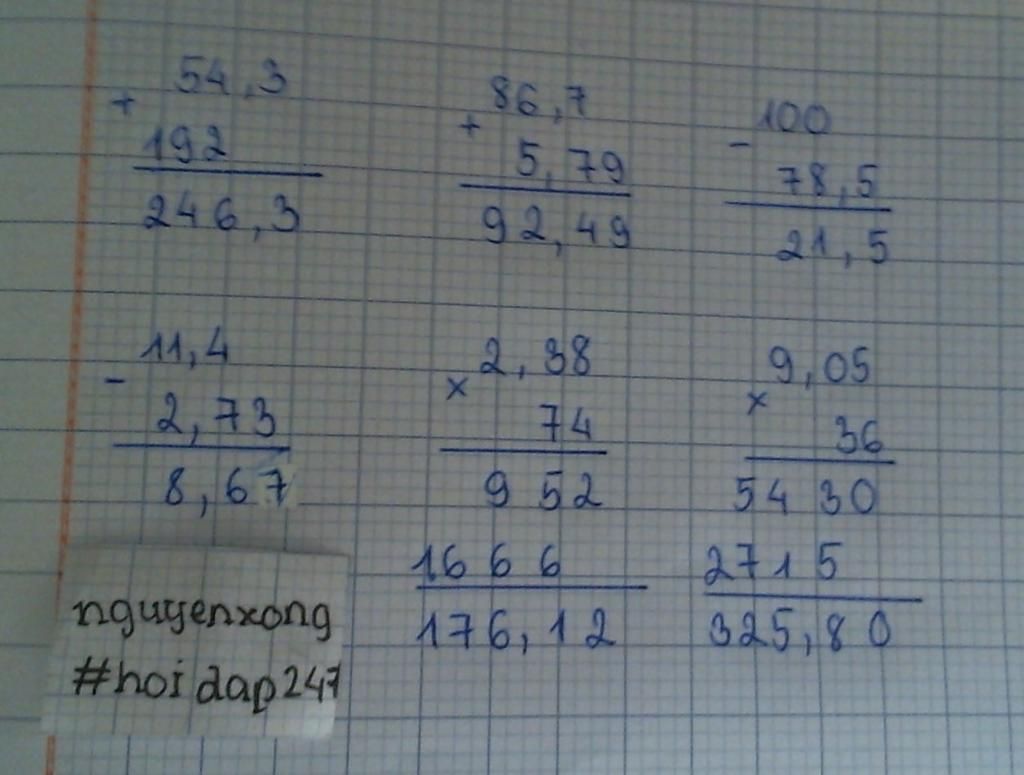 54,3
+
192
246,3
86,7
+
5,79
92,49
100
-
78,5
21,5
11,4
-
2,73
8,67
2,38
x
74
9 52
16 6 6
176,12
9,05
x
36
54 30
271 5
325,80
nguyenxong
#hoidap247